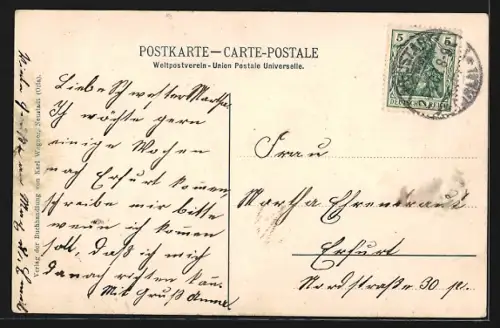 POSTKARTE — CARTE-POSTALE
Weltpostverein - Union Postale Universelle.
5 5
DEUTSCHES REICH
Liebe Schwester Martha.
Ich möchte gern
einige Wochen
nach Erfurt kommen
schreibe mir bitte
wenn ich kommen
soll, daß ich mich
danach richten kann.
Mit Gruß Anna.
Frau
Martha Ehrenbrandt
Erfurt
Nordstraße 30 pl.
Verlag der Buchhandlung von Karl Wagner, Neustadt (Orla).